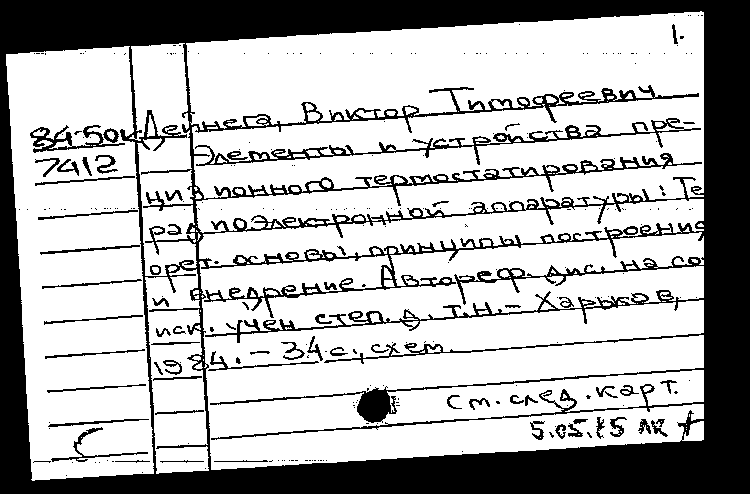 1.
84-50к Дейнега, Виктор Тимофеевич.
7412 Элементы и устройства пре-
цизионного термостатирования
радиоэлектронной аппаратуры: Те
орет. основы, принципы построения
и внедрение. Автореф. дис. на со
иск. учен степ. д. т.н. - Харьков,
1984. - 34 с., схем.
См. след. карт.
5.05.85 ЛК